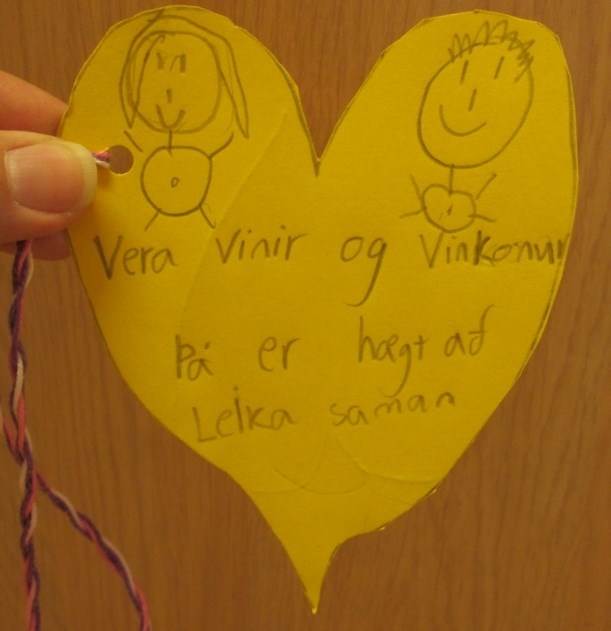 Vera vinir og Vinkonur
Þá er hægt að
Leika saman